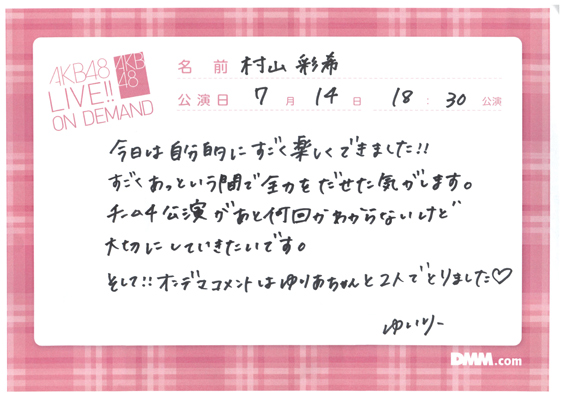 AKB48
LIVE!!
ON DEMAND
AKB
48
名 前 村山 彩希
公演日 7 月 14 日 18 : 30 公演
今日は自分的にすごく楽しくできました!!
すごくあっという間で全力をだせた気がします。
チーム4公演があと何回かわからないけど
大切にしていきたいです。
そして!! オンデマコメントはゆりあちゃんと2人でとりました♡
ゆいりー
DMM.com